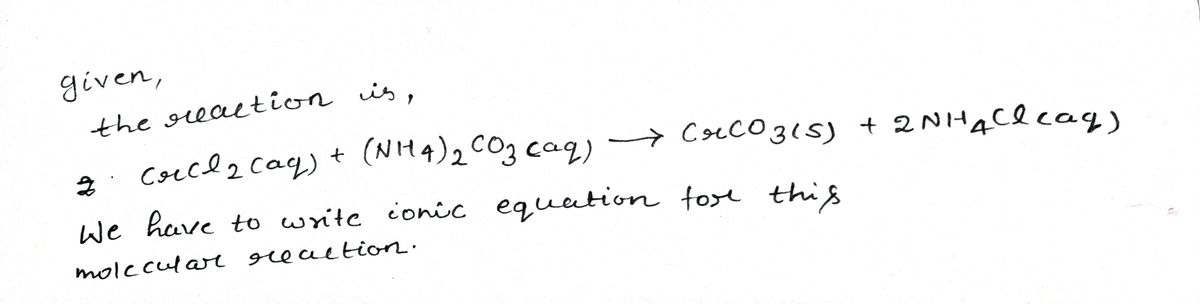 given,
the reaction is,
CrCl2(aq) + (NH4)2CO3(aq) → CrCO3(s) + 2NH4Cl(aq)
We have to write ionic equation for this
molecular reaction.